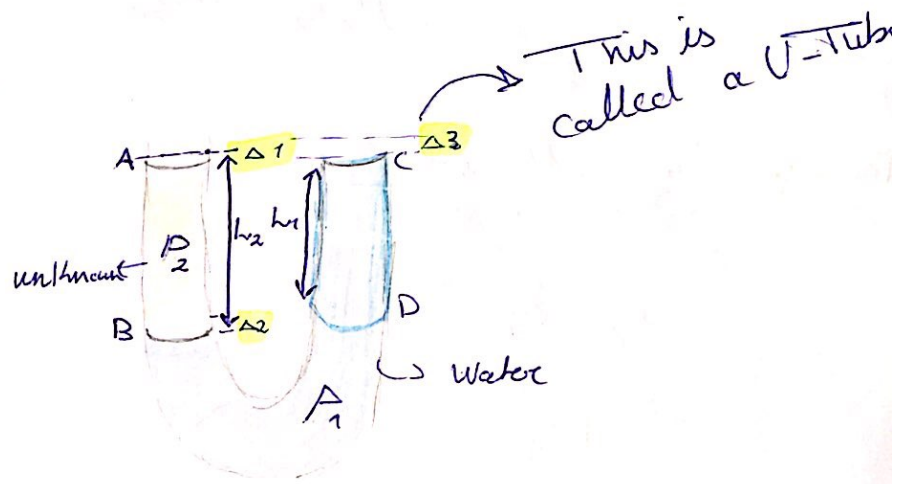 This is
called a U-Tube
A Δ1 Δ3 C
h₂ h₁
ρ₂
unknown
B Δ2 D
Water
ρ₁